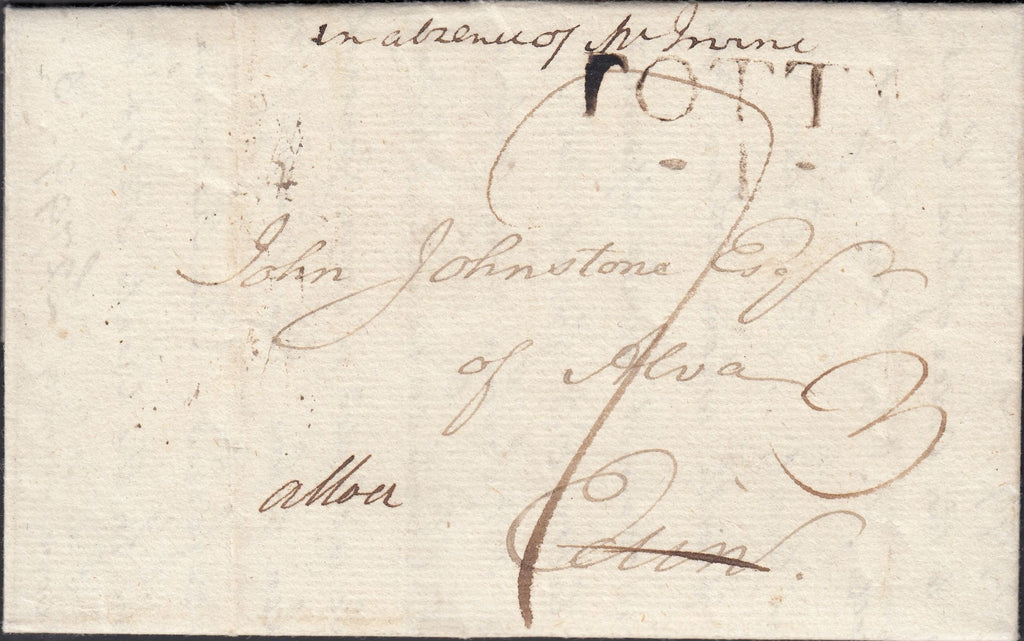 in absence of Mr Irvine
TOTT
- I -
John Johnstone Esqr.
of Alva
3
alloa
Edinr.
7